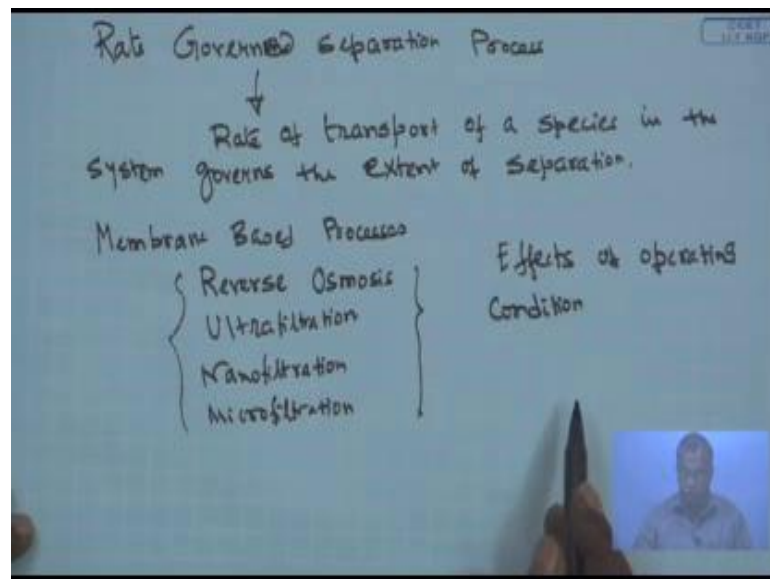 Rate Governed Separation Process
Rate of transport of a species in the
system governs the extent of separation.
Membrane Based Processes
Reverse Osmosis
Ultrafiltration
Nanofiltration
Microfiltration
Effects of operating
Condition